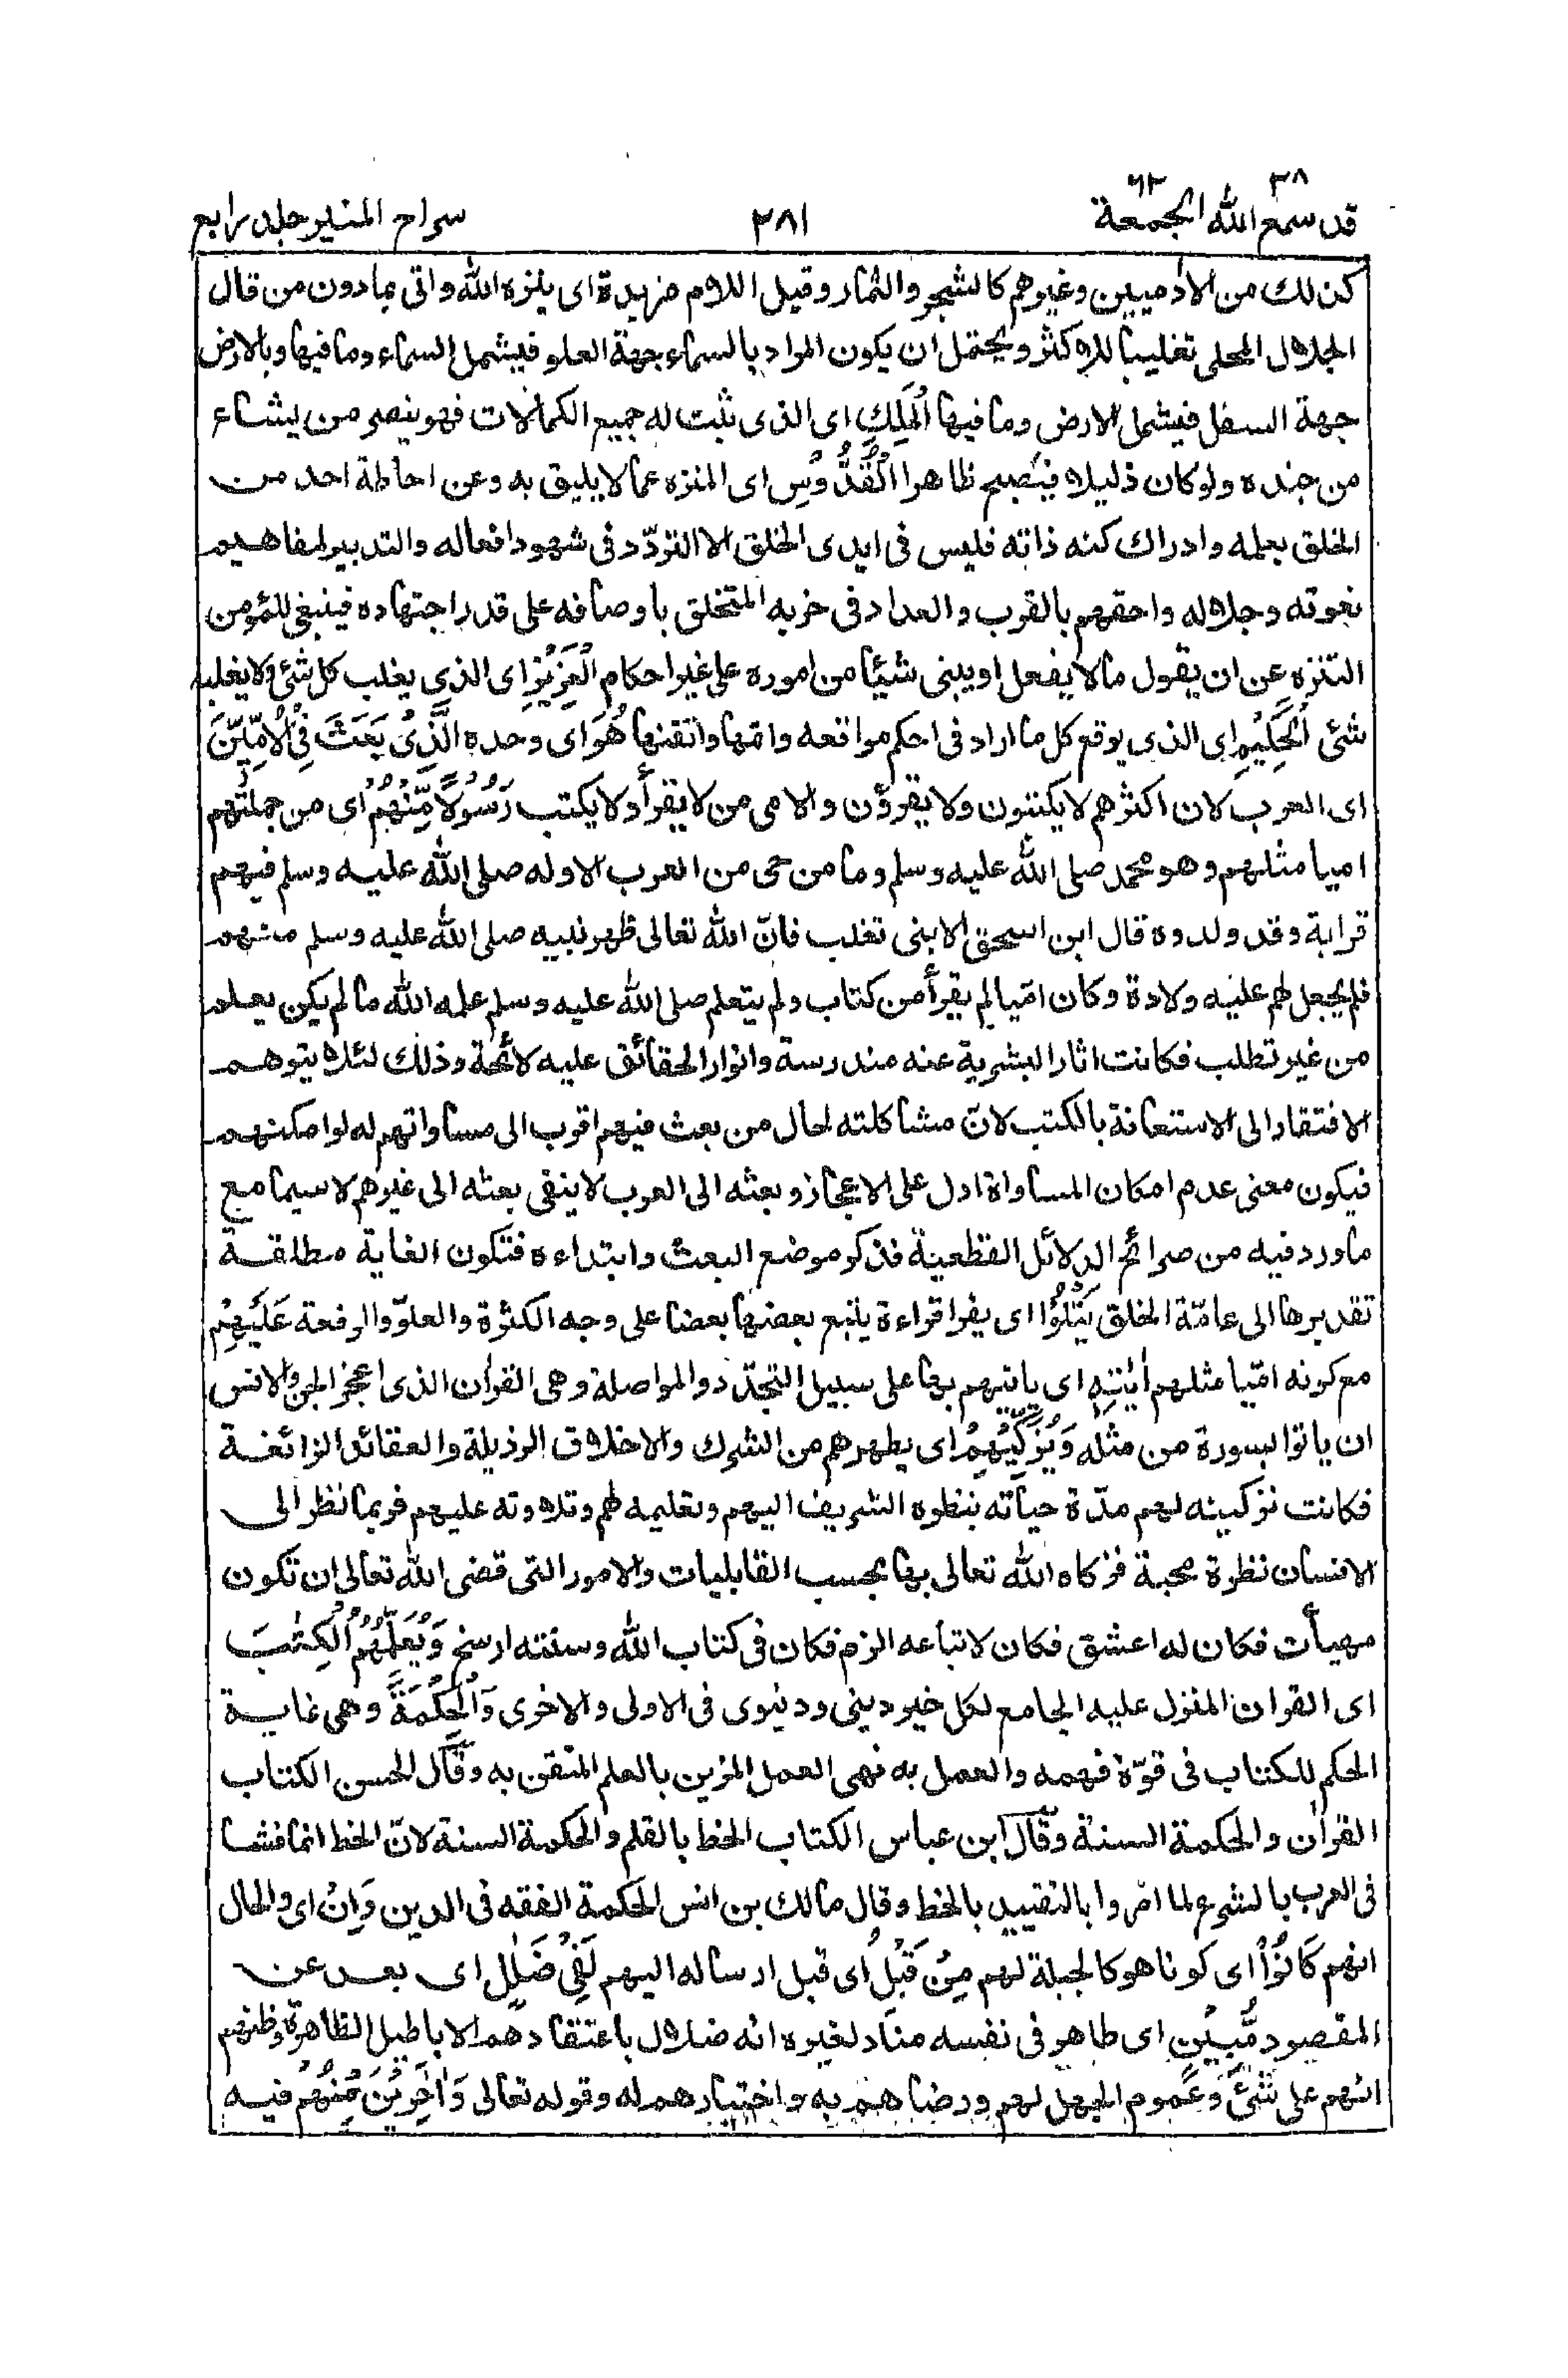 ٢٨ ٦٢
قد سمع الله الجمعة ٢٨١ سراج المنير جلد رابع
كذلك من الاٰدميين وغيرهم كالشجر والثمار وقيل اللام مزيدة اى ينزه الله واتى بمادون من قال
الجلال المحلى تغليبا للاكثر ويحتمل ان يكون المراد بالسماء جهة العلو فيشمل السماء وما فيها وبالارض
جهة السفل فيشمل الارض وما فيها الْمَلِكِ اى الذى ثبت له جميع الكمالات فهو ينصر من يشاء
من جنده ولو كان ذليلا فيصبح ظاهرا الْقُدُّوْسِ اى المنزه عما لا يليق به وعن احاطة احد من
الخلق بعلمه وادراك كنه ذاته فليس فى ايدى الخلق الا التردّد فى شهود افعاله والتدبير لمفاهيم
نعوته وجلاله واحقهم بالقرب والعداد فى حزبه المتخلق باوصافه على قدر اجتهاده فينبغى للمؤمن
التنزه عن ان يقول مالا يفعل او يبنى شيئا من اموره على غير احكام الْعَزِيْزِ اى الذى يغلب كل شئ ولا يغلبه
شئ الْحَكِيْمِ اى الذى يوقع كل ما اراد فى احكم مواقعه واتمها واتقنها هُوَ اى وحده الَّذِىْ بَعَثَ فِى الْاُمِّيّٖنَ
اى العرب لان اكثرهم لا يكتبون ولا يقرؤن والامى من لا يقرأ ولا يكتب رَسُوْلًا مِّنْهُمْ اى من جملتهم
اميا مثلهم وهو محمد صلى الله عليه وسلم وما من حى من العرب الا وله صلى الله عليه وسلم فيهم
قرابة وقد ولدوه قال ابن اسحق الا بنى تغلب فانّ الله تعالى طهر نبيه صلى الله عليه وسلم منهم
فلم يجعل لهم عليه ولادة وكان امّيا لم يقرأ من كتاب ولم يتعلم صلى الله عليه وسلم علمه الله ما لم يكن يعلم
من غير تطلب فكانت اثار البشرية عنه مندرسة وانوار الحقائق عليه لائحة وذلك لئلا يتوهم
الافتقار الى الاستعانة بالكتب لانّ مشاكلته لحال من بعث فيهم اقرب الى مساواتهم له لو امكنهم
فيكون معنى عدم امكان المساواة ادل على الاعجاز وبعثه الى العرب لا ينفى بعثه الى غيرهم لا سيما مع
ما ورد فيه من صرائح الدلائل القطعية فذكر موضع البعث وابتداءه فتكون الغاية مطلقة
تقديرها الى عامّة الخلق يَتْلُوْا اى يقرا قراءة يتبع بعضها بعضا على وجه الكثرة والعلوّ والرفعة عَلَيْهِمْ
مع كونه امّيا مثلهم اٰيٰتِهٖ اى ياتيهم بها على سبيل التجدّد والمواصلة وهى القراٰن الذى اعجز الجن والانس
ان ياتوا بسورة من مثله وَيُزَكِّيْهِمْ اى يطهرهم من الشرك والاخلاق الرذيلة والعقائد الزائغة
فكانت تزكيته لهم مدّة حياته بنظره الشريف اليهم وتعليمه لهم وتلاوته عليهم فربما نظر الى
الانسان نظرة محبة فزكاه الله تعالى بها بحسب القابليات والامور التى قضى الله تعالى ان تكون
مهيأت فكان له اعشق فكان لاتباعه الزم فكان فى كتاب الله وسنته ارسخ وَيُعَلِّمُهُمُ الْكِتٰبَ
اى القراٰن المنزل عليه الجامع لكل خير دينى ودنيوى فى الاولى والاخرى وَالْحِكْمَةَ وهى غاية
الحكم للكتاب فى قوّة فهمه والعمل به فهى العمل المزين بالعلم المتقن به وقال الحسن الكتاب
القراٰن والحكمة السنة وقال ابن عباس الكتاب الخط بالقلم والحكمة السنة لانّ الخط انما فشا
فى العرب بالشرع لما امروا بالتقييد بالخط وقال مالك بن انس الحكمة الفقه فى الدين وَاِنْ اى والحال
انهم كَانُوْا اى كونا هو كالجبلة لهم مِنْ قَبْلُ اى قبل ارساله اليهم لَفِىْ ضَلٰلٍ اى بعد عن
المقصود مُّبِيْنٍ اى ظاهر فى نفسه مناد لغيره انه ضلال باعتقادهم الاباطيل الظاهرة وظنهم
انهم على شئ وعموم الجهل لهم ورضاهم به واختيارهم له وقوله تعالى وَاٰخَرِيْنَ مِنْهُمْ فيه